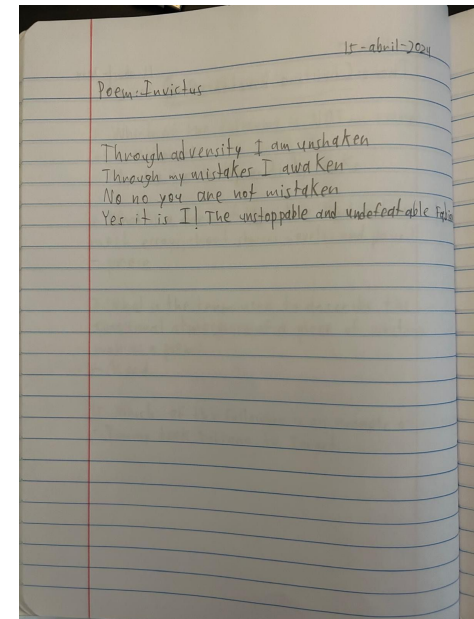 15-abril-2024
Poem: Invictus
Through adversity I am unshaken
Through my mistakes I awaken
No no you are not mistaken
Yes it is I! The unstoppable and undefeatable